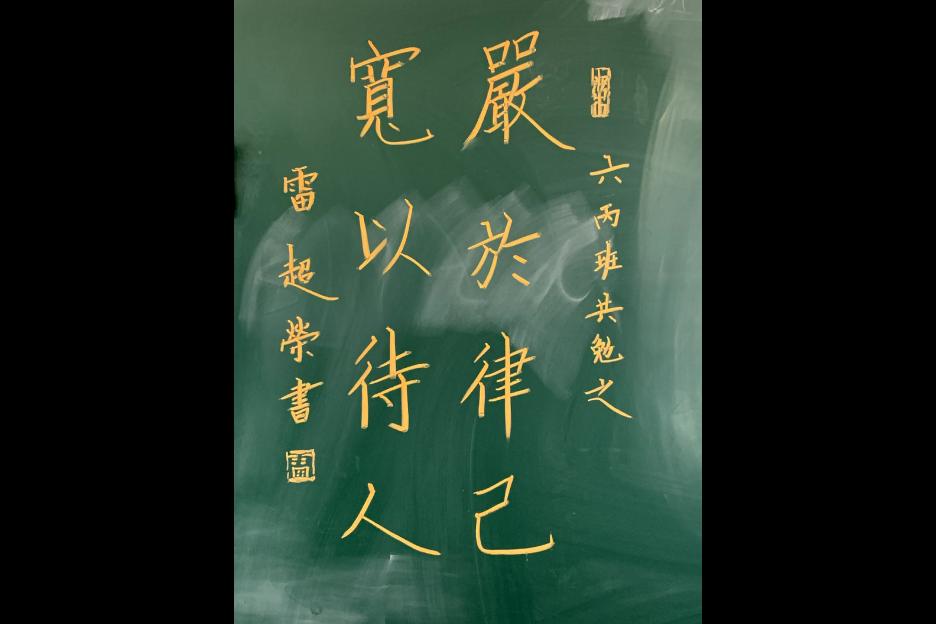 六丙班共勉之
嚴於律己
寬以待人
雷超榮書